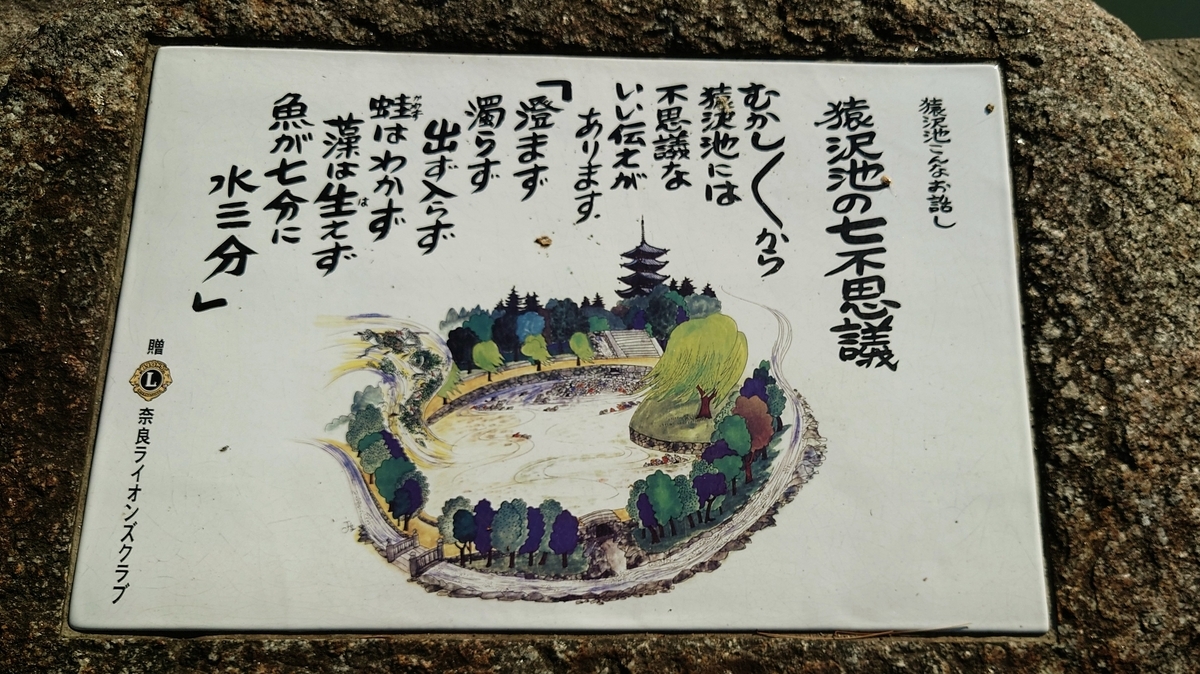 猿沢池こんなお話し
猿沢池の七不思議
むかし〱から
猿沢池には
不思議な
いい伝えが
あります
「澄まず
濁らず
出ず入らず
蛙はわかず
藻は生えず
魚が七分に
水三分」
贈
L
奈良ライオンズクラブ